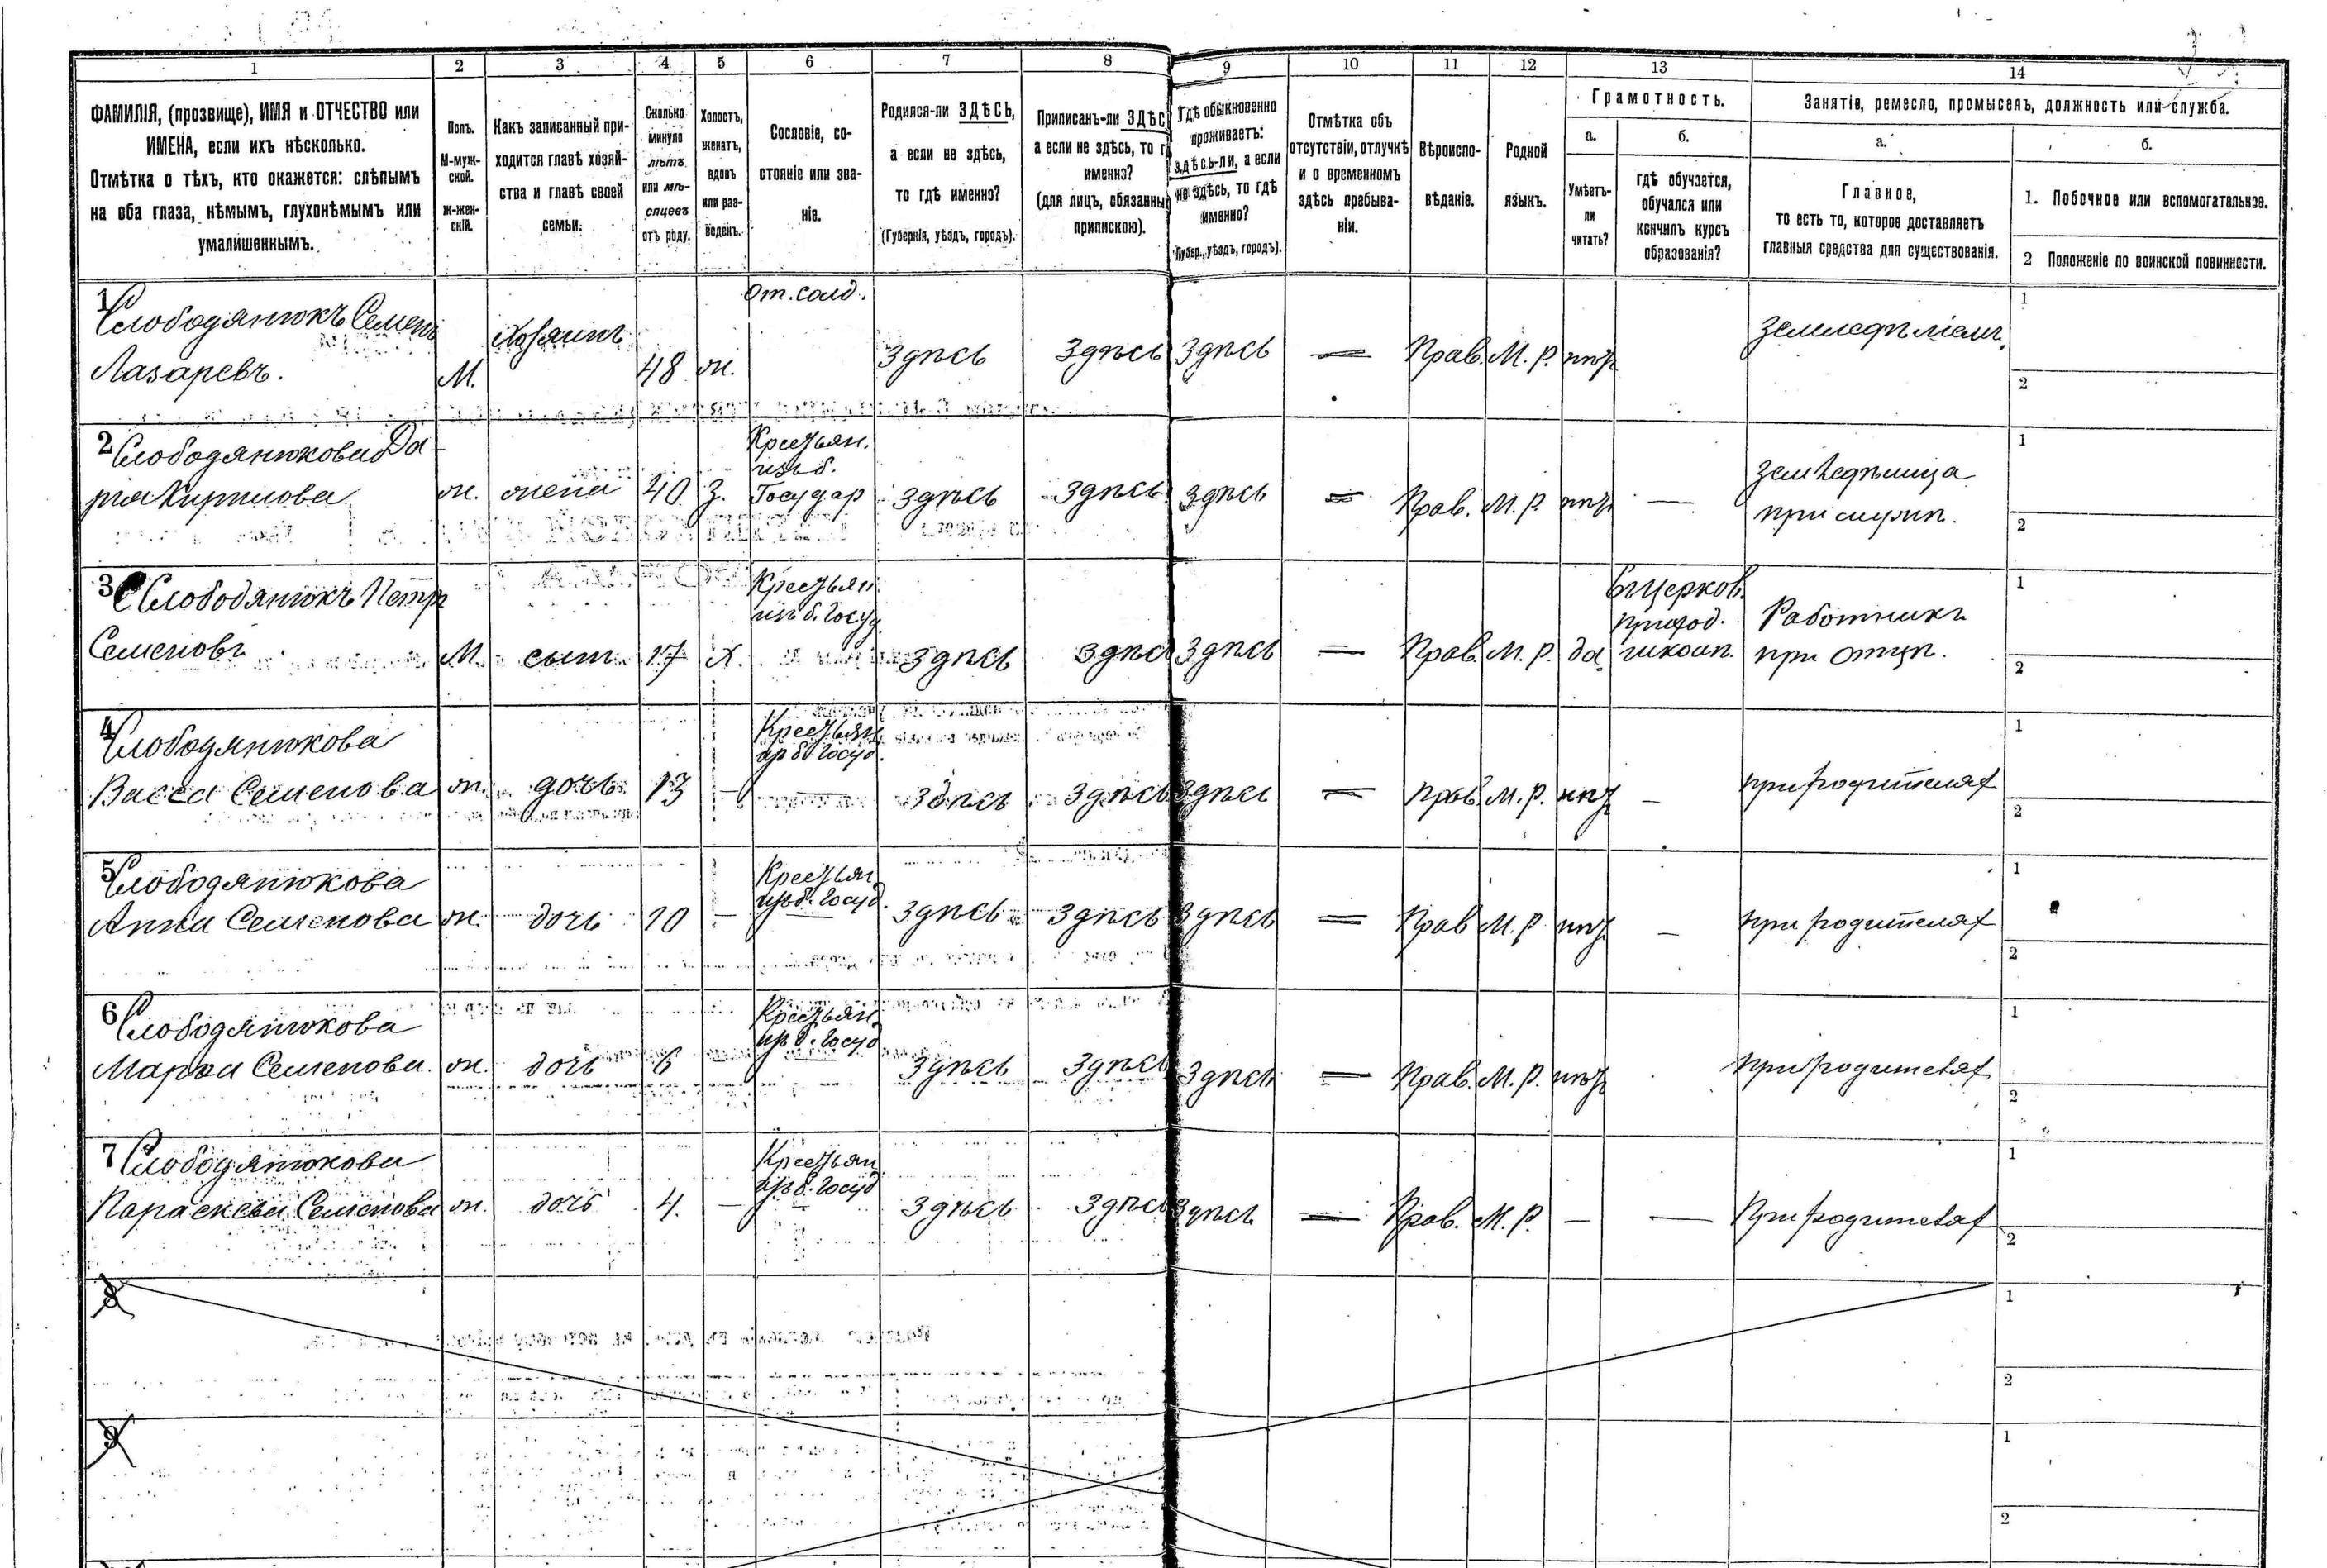 1 2 3 4 5 6 7 8 9 10 11 12 13 14
ФАМИЛІЯ, (прозвище), ИМЯ и ОТЧЕСТВО или
ИМЕНА, если ихъ нѣсколько.
Отмѣтка о тѣхъ, кто окажется: слѣпымъ
на оба глаза, нѣмымъ, глухонѣмымъ или
умалишеннымъ.
Полъ.
М-муж-
ской.
Ж-жен-
скій.
Какъ записанный при-
ходится главѣ хозяй-
ства и главѣ своей
семьи.
Сколько
минуло
лѣтъ
или мѣ-
сяцевъ
отъ роду.
Холостъ,
женатъ,
вдовъ
или раз-
веденъ.
Сословіе, со-
стояніе или зва-
ніе.
Родился-ли ЗДѢСЬ,
а если не здѣсь,
то гдѣ именно?
(Губернія, уѣздъ, городъ).
Приписанъ-ли ЗДѢС
а если не здѣсь, то г
именно?
(для лицъ, обязанны
припискою).
Гдѣ обыкновенно
проживаетъ:
здѣсь-ли, а если
не здѣсь, то гдѣ
именно?
Губер., уѣздъ, городъ).
Отмѣтка объ
отсутствіи, отлучкѣ
и о временномъ
здѣсь пребыва-
ніи.
Вѣроиспо-
вѣданіе.
Родной
языкъ.
Грамотность.
а.
Умѣетъ-
ли
читать?
б.
гдѣ обучается,
обучался или
кончилъ курсъ
образованія?
Занятіе, ремесло, промыселъ, должность или служба.
а.
Главное,
то есть то, которое доставляетъ
главныя средства для существованія.
б.
1. Побочное или вспомогательное.
2 Положеніе по воинской повинности.
1 Слободянюкъ Семенъ
Лазаревъ.
М.
Хозяинъ
48
ж.
От. солд.
Здѣсь
Здѣсь
Здѣсь
—
Прав.
М. р.
нѣт
Земледѣліемъ.
1
2
2 Слободянюкова Да-
рія Кирилова
ж.
жена
40
З.
Крестьян.
из б.
Государ
Здѣсь
Здѣсь
Здѣсь
—
Прав.
М. р.
нѣт
—
Земледѣлица
при мужѣ.
1
2
3 Слободянюкъ Петр
Семеновъ
М.
сынъ
17
Х.
Крестьян
из б. Госуд
Здѣсь
Здѣс
Здѣсь
—
Прав.
М. р.
да
въ церков.
приход.
школѣ.
Работникъ
при отцѣ.
1
2
4 Слободянюкова
Васса Семенова
ж.
дочь
13
—
Крестьян
из б. Госуд.
Здѣсь
Здѣсь
Здѣсь
—
Прав.
М. р.
нѣт
—
при родителях
1
2
5 Слободянюкова
Анна Семенова
ж.
дочь
10
—
Крестьян
из б. Госуд.
Здѣсь
Здѣсь
Здѣсь
—
Прав
М. р.
нѣт
—
при родителях
1
2
6 Слободянюкова
Марья Семенова.
ж.
дочь
6
Крестьян
из б. Госуд
Здѣсь
Здѣсь
Здѣсь
—
Прав.
М. р.
нѣт
при родителях
1
2
7 Слободянюкова
Параскева Семенова
ж.
дочь
4.
—
Крестьян
из б. Госуд
Здѣсь
Здѣсь
Здѣсь
—
Прав.
М. р.
—
—
При родителях
1
2
8
1
2
9
1
2